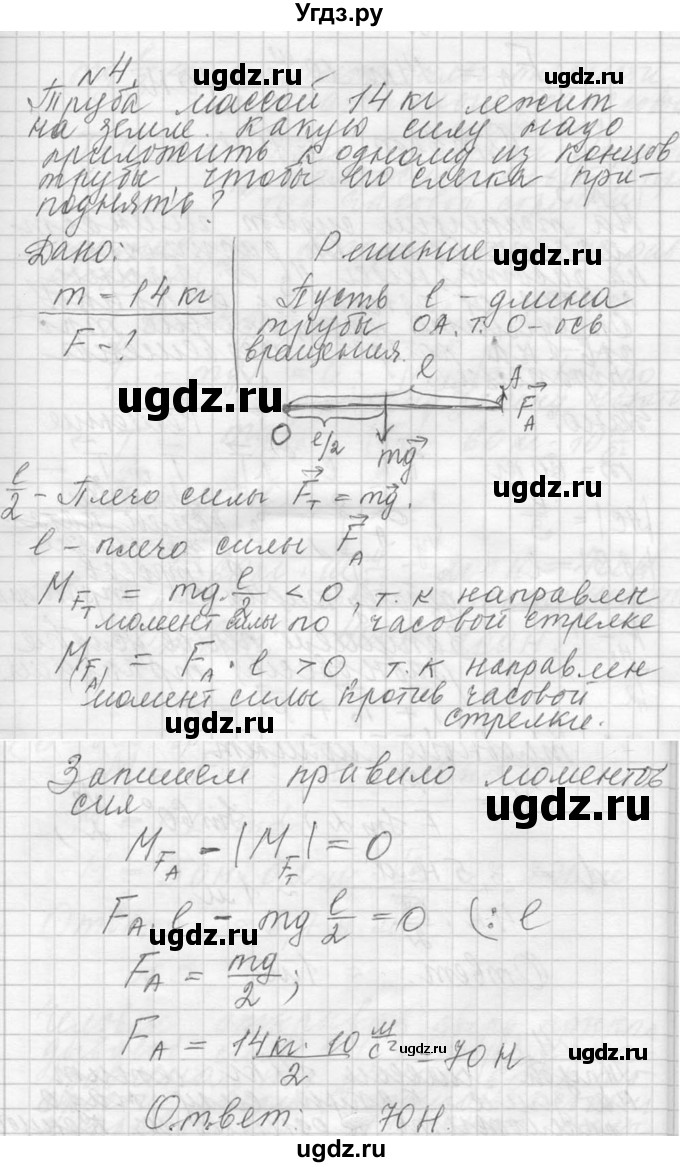 Угдз.ру
№4.
Труба массой 14 кг лежит
на земле. Какую силу надо
приложить к одному из концов
трубы чтобы его слегка при-
поднять?
Дано: Решение
m - 14 кг Пусть l - длина
F - ? трубы OA. т. O - ось
вращения.
l A
F⃗_A
O l/2 mg⃗
l/2 - Плечо силы F⃗_T = mg⃗.
l - плечо силы F⃗_A
M_{F_T} = mg · l/2 < 0, т. к направлен
момент силы по часовой стрелке
M_{F_A} = F_A · l > 0, т. к направлен
момент силы против часовой
стрелки.
Запишем правило моментов
сил
M_{F_A} - |M_{F_T}| = 0
F_A · l - mg l/2 = 0 (: l
F_A = mg/2;
F_A = 14 кг · 10 м/с² / 2 = 70 Н
Ответ: 70 Н.
ugdz.ru
ugdz.ru
ugdz.ru
ugdz.ru
ugdz.ru
ugdz.ru
ugdz.ru
ugdz.ru
ugdz.ru
ugdz.ru
ugdz.ru
ugdz.ru
ugdz.ru